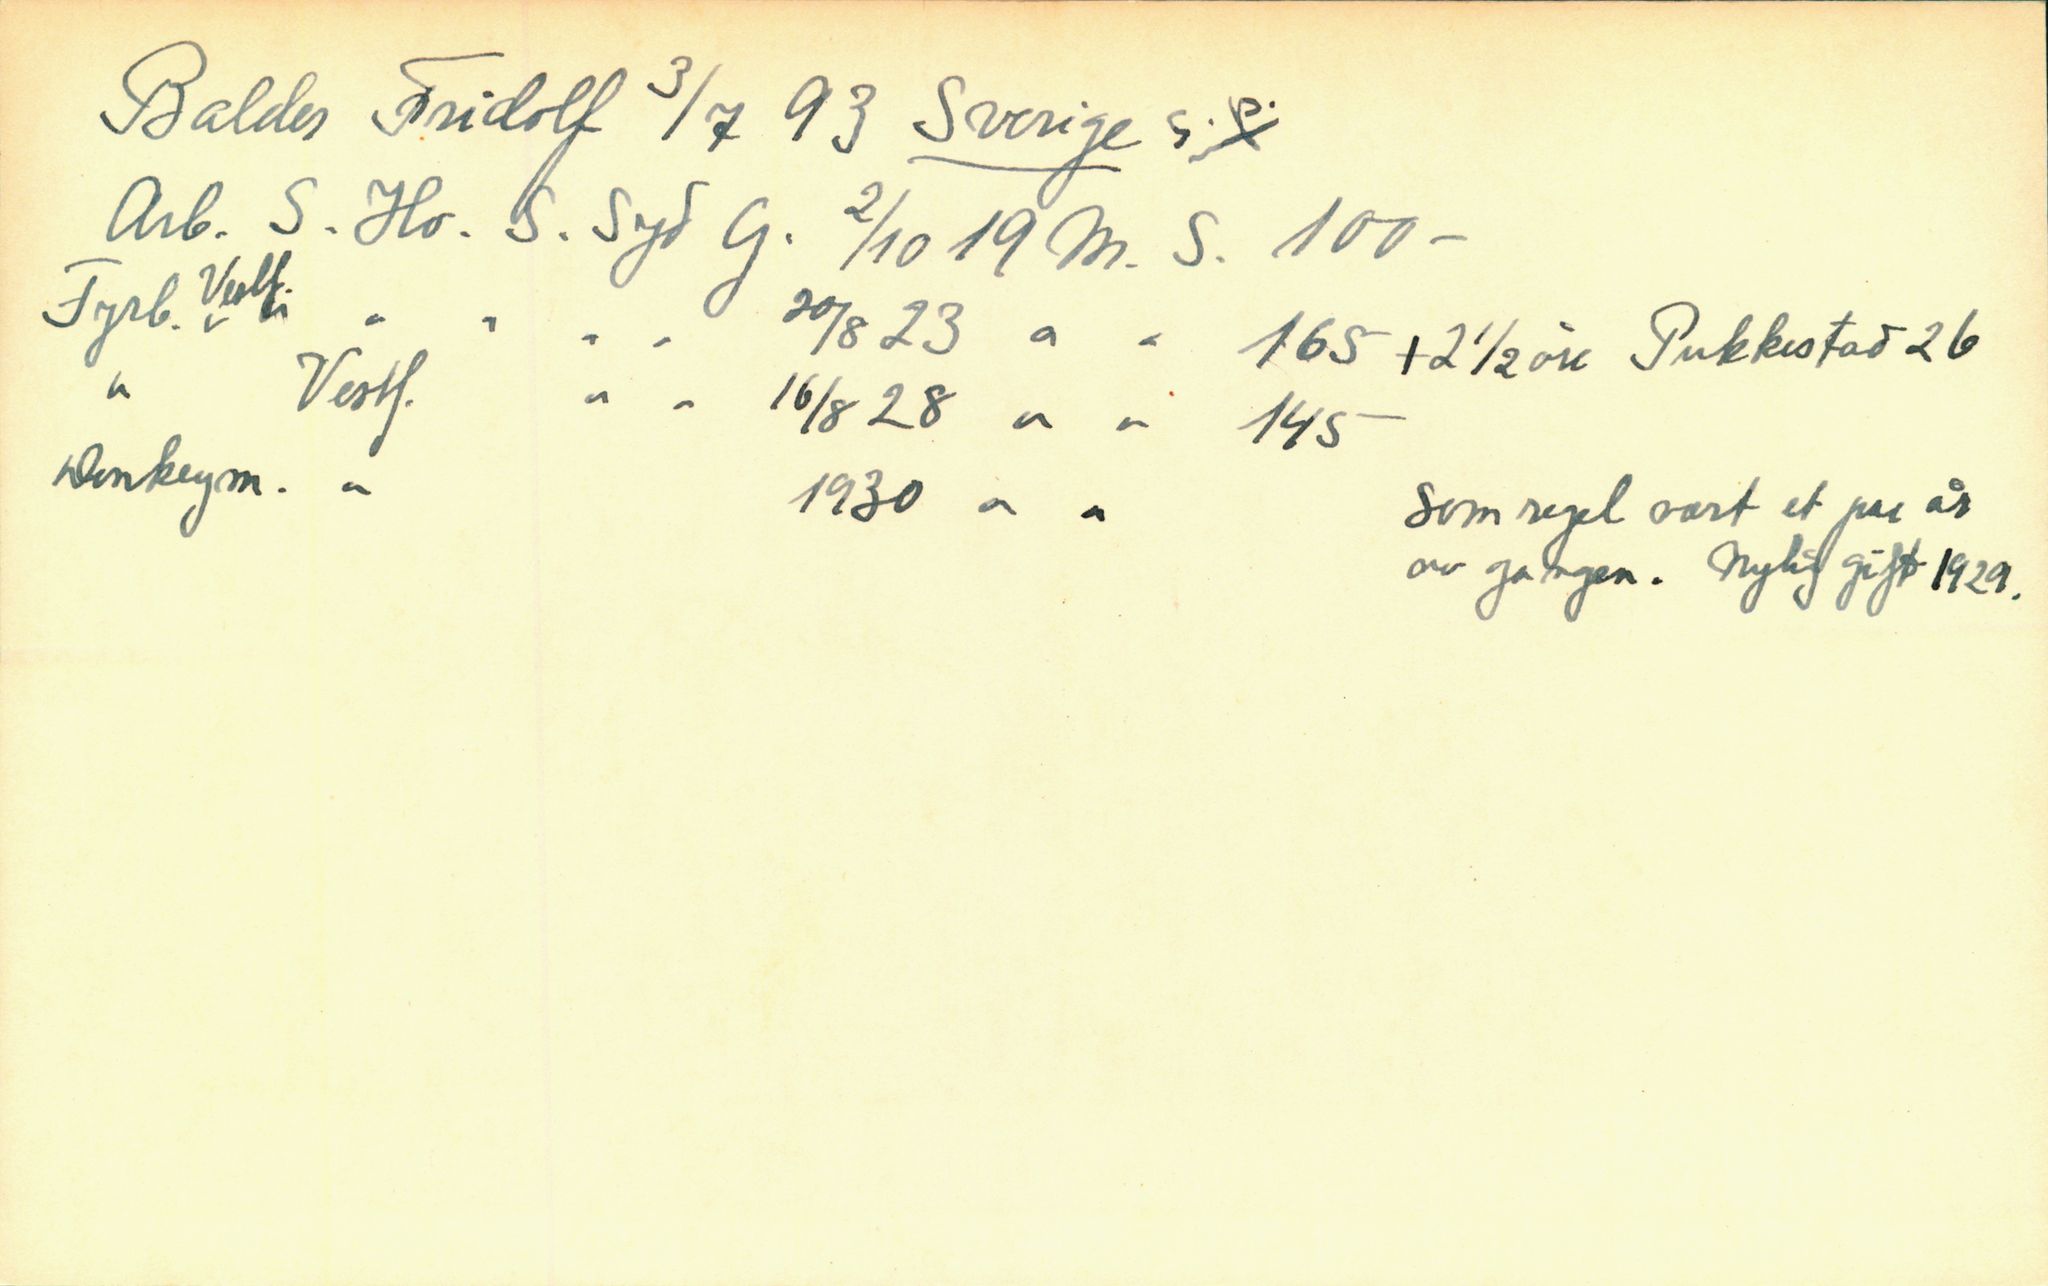 Balder Fridolf 3/7 93 Sverige
Arb. S. Ho. S. Syd G. 2/10 19 M. S. 100-
Fyrb. Vestf. " " " " " 20/8 23 " " 165 + 2 1/2 öre Pukkestad 26
" Vestf. " " 16/8 28 " " 145-
Donkeym. " 1930 " " Som regel vært et par år
av gangen. Nylig gift 1929.